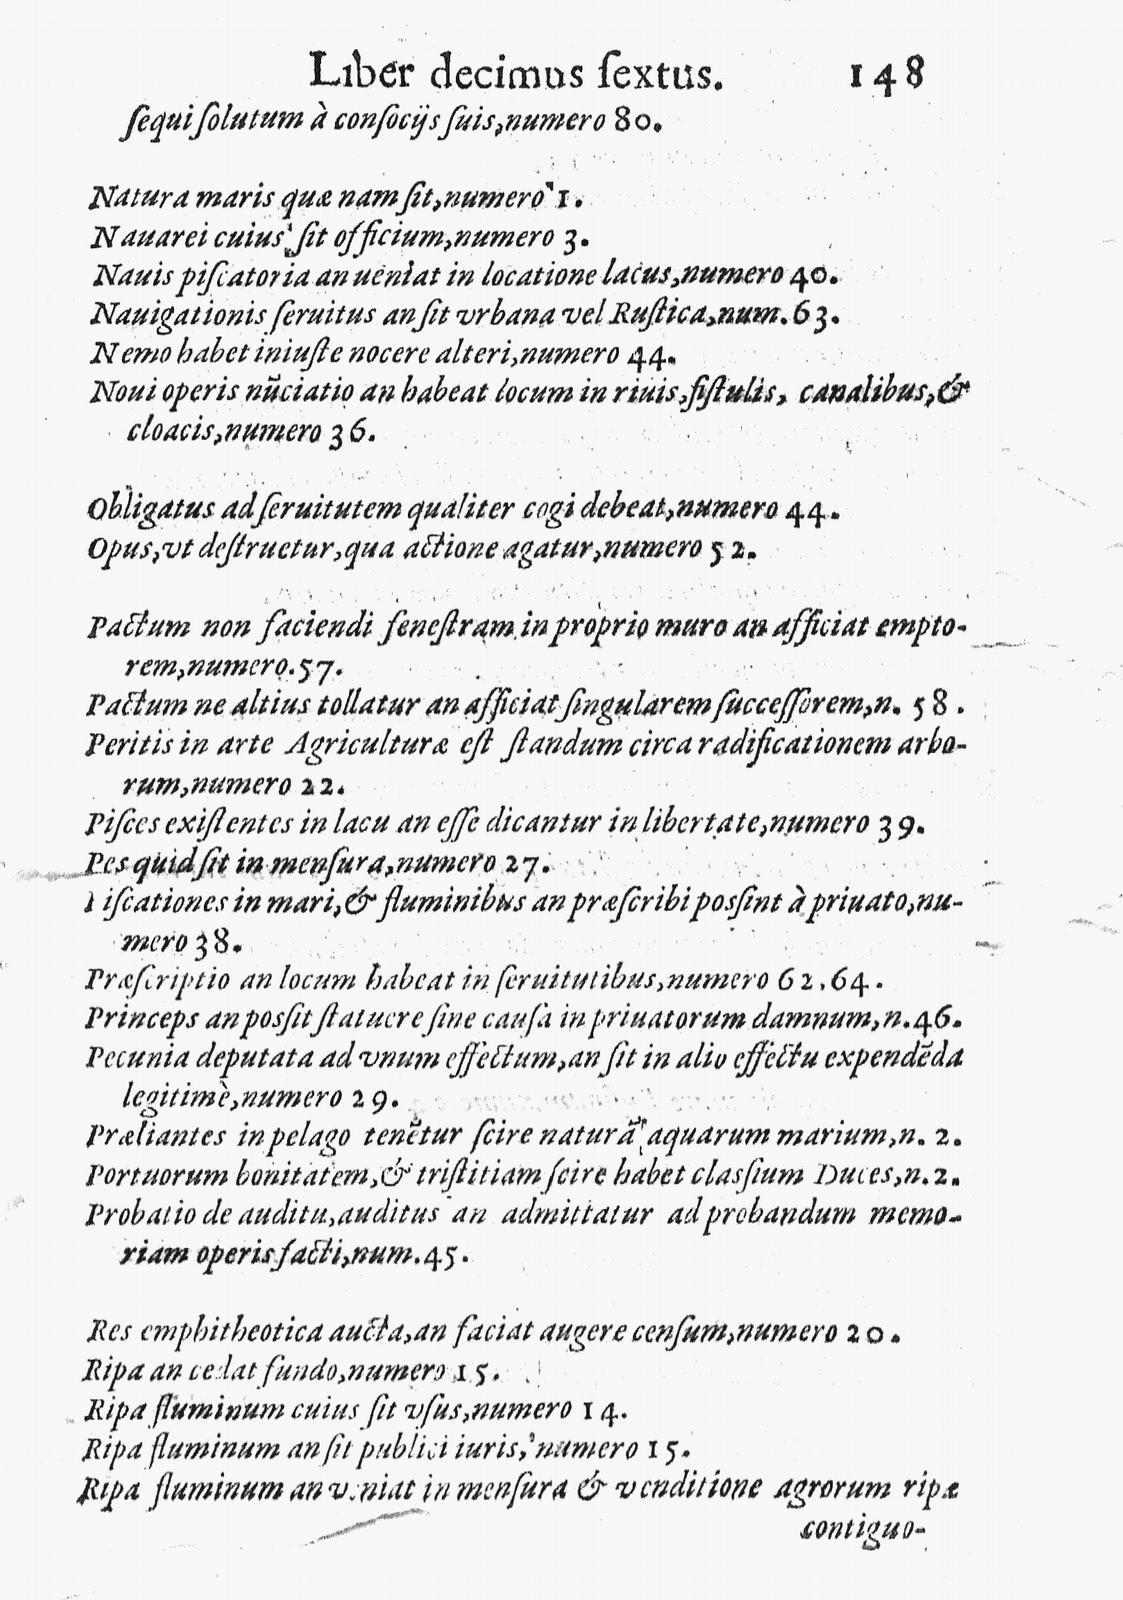 Liber decimus ſextus. 148
ſequi ſolutum à conſocijs ſuis, numero 80.
Natura maris quæ nam ſit, numero 1.
Nauarei cuius ſit officium, numero 3.
Nauis piſcatoria an ueniat in locatione lacus, numero 40.
Nauigationis ſeruitus an ſit vrbana vel Ruſtica, num. 63.
Nemo habet iniuſte nocere alteri, numero 44.
Noui operis nũciatio an habeat locum in riuis, fiſtulis, canalibus, &
cloacis, numero 36.
Obligatus ad ſeruitutem qualiter cogi debeat, numero 44.
Opus, vt deſtruetur, qua actione agatur, numero 52.
Pactum non faciendi feneſtram in proprio muro an afficiat empto-
rem, numero. 57.
Pactum ne altius tollatur an afficiat ſingularem ſucceſſorem, n. 58.
Peritis in arte Agriculturæ eſt ſtandum circa radificationem arbo-
rum, numero 22.
Piſces exiſtentes in lacu an eſſe dicantur in libertate, numero 39.
Pes quid ſit in menſura, numero 27.
Piſcationes in mari, & fluminibus an præſcribi poſſint à priuato, nu-
mero 38.
Præſcriptio an locum habeat in ſeruitutibus, numero 62. 64.
Princeps an poſſit ſtatuere ſine cauſa in priuatorum damnum, n. 46.
Pecunia deputata ad vnum effectum, an ſit in alio effectu expendẽda
legitimè, numero 29.
Præliantes in pelago tenẽtur ſcire naturã aquarum marium, n. 2.
Portuorum bonitatem, & triſtitiam ſcire habet claſſium Duces, n. 2.
Probatio de auditu, auditus an admittatur ad probandum memo-
riam operis facti, num. 45.
Res emphitheotica aucta, an faciat augere cenſum, numero 20.
Ripa an cedat fundo, numero 15.
Ripa fluminum cuius ſit vſus, numero 14.
Ripa fluminum an ſit publici iuris, numero 15.
Ripa fluminum an veniat in menſura & venditione agrorum ripæ
contiguo-